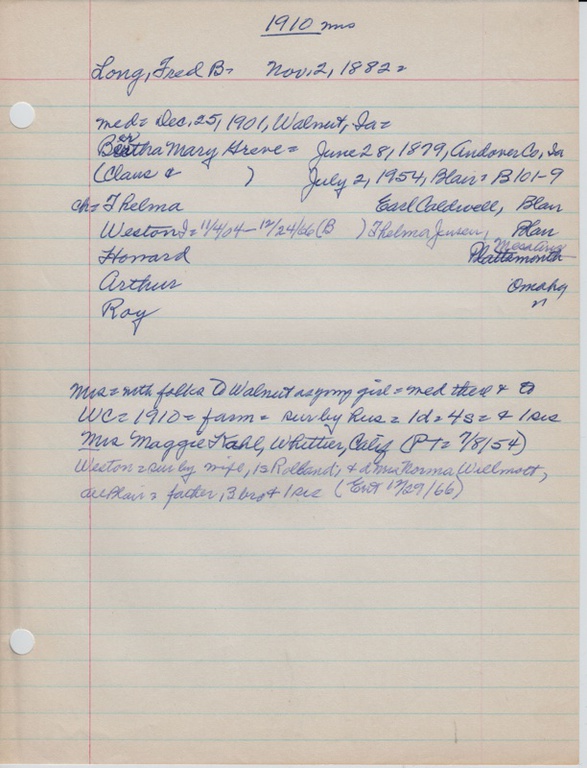 1910 mrs
Long, Fred B= Nov. 2, 1882=
med= Dec. 25, 1901, Walnut, Ia=
Bertha Mary Greve= June 28, 1879, Andover Co, Ia
(Claus & ) July 2, 1954, Blair= B101-9
ch= Thelma Earl Caldwell, Blair
Weston I= 11/4/04-12/24/66 (B ) Thelma Jensen, Blair
Howard Plattsmouth
Arthur Omaha
Roy "
Mrs= with folks to Walnut as young girl= med there & to
WC= 1910= farm= sur by hus= 1d= 4s= & 1 sis
Mrs Maggie Kahl, Whittier, Calif (PT= 7/8/54)
Weston= sur by wife, 1s Rolland; & d Mrs Norma Willmott,
all Blair= father, 3 bro & 1 sis (Ent 12/29/66)